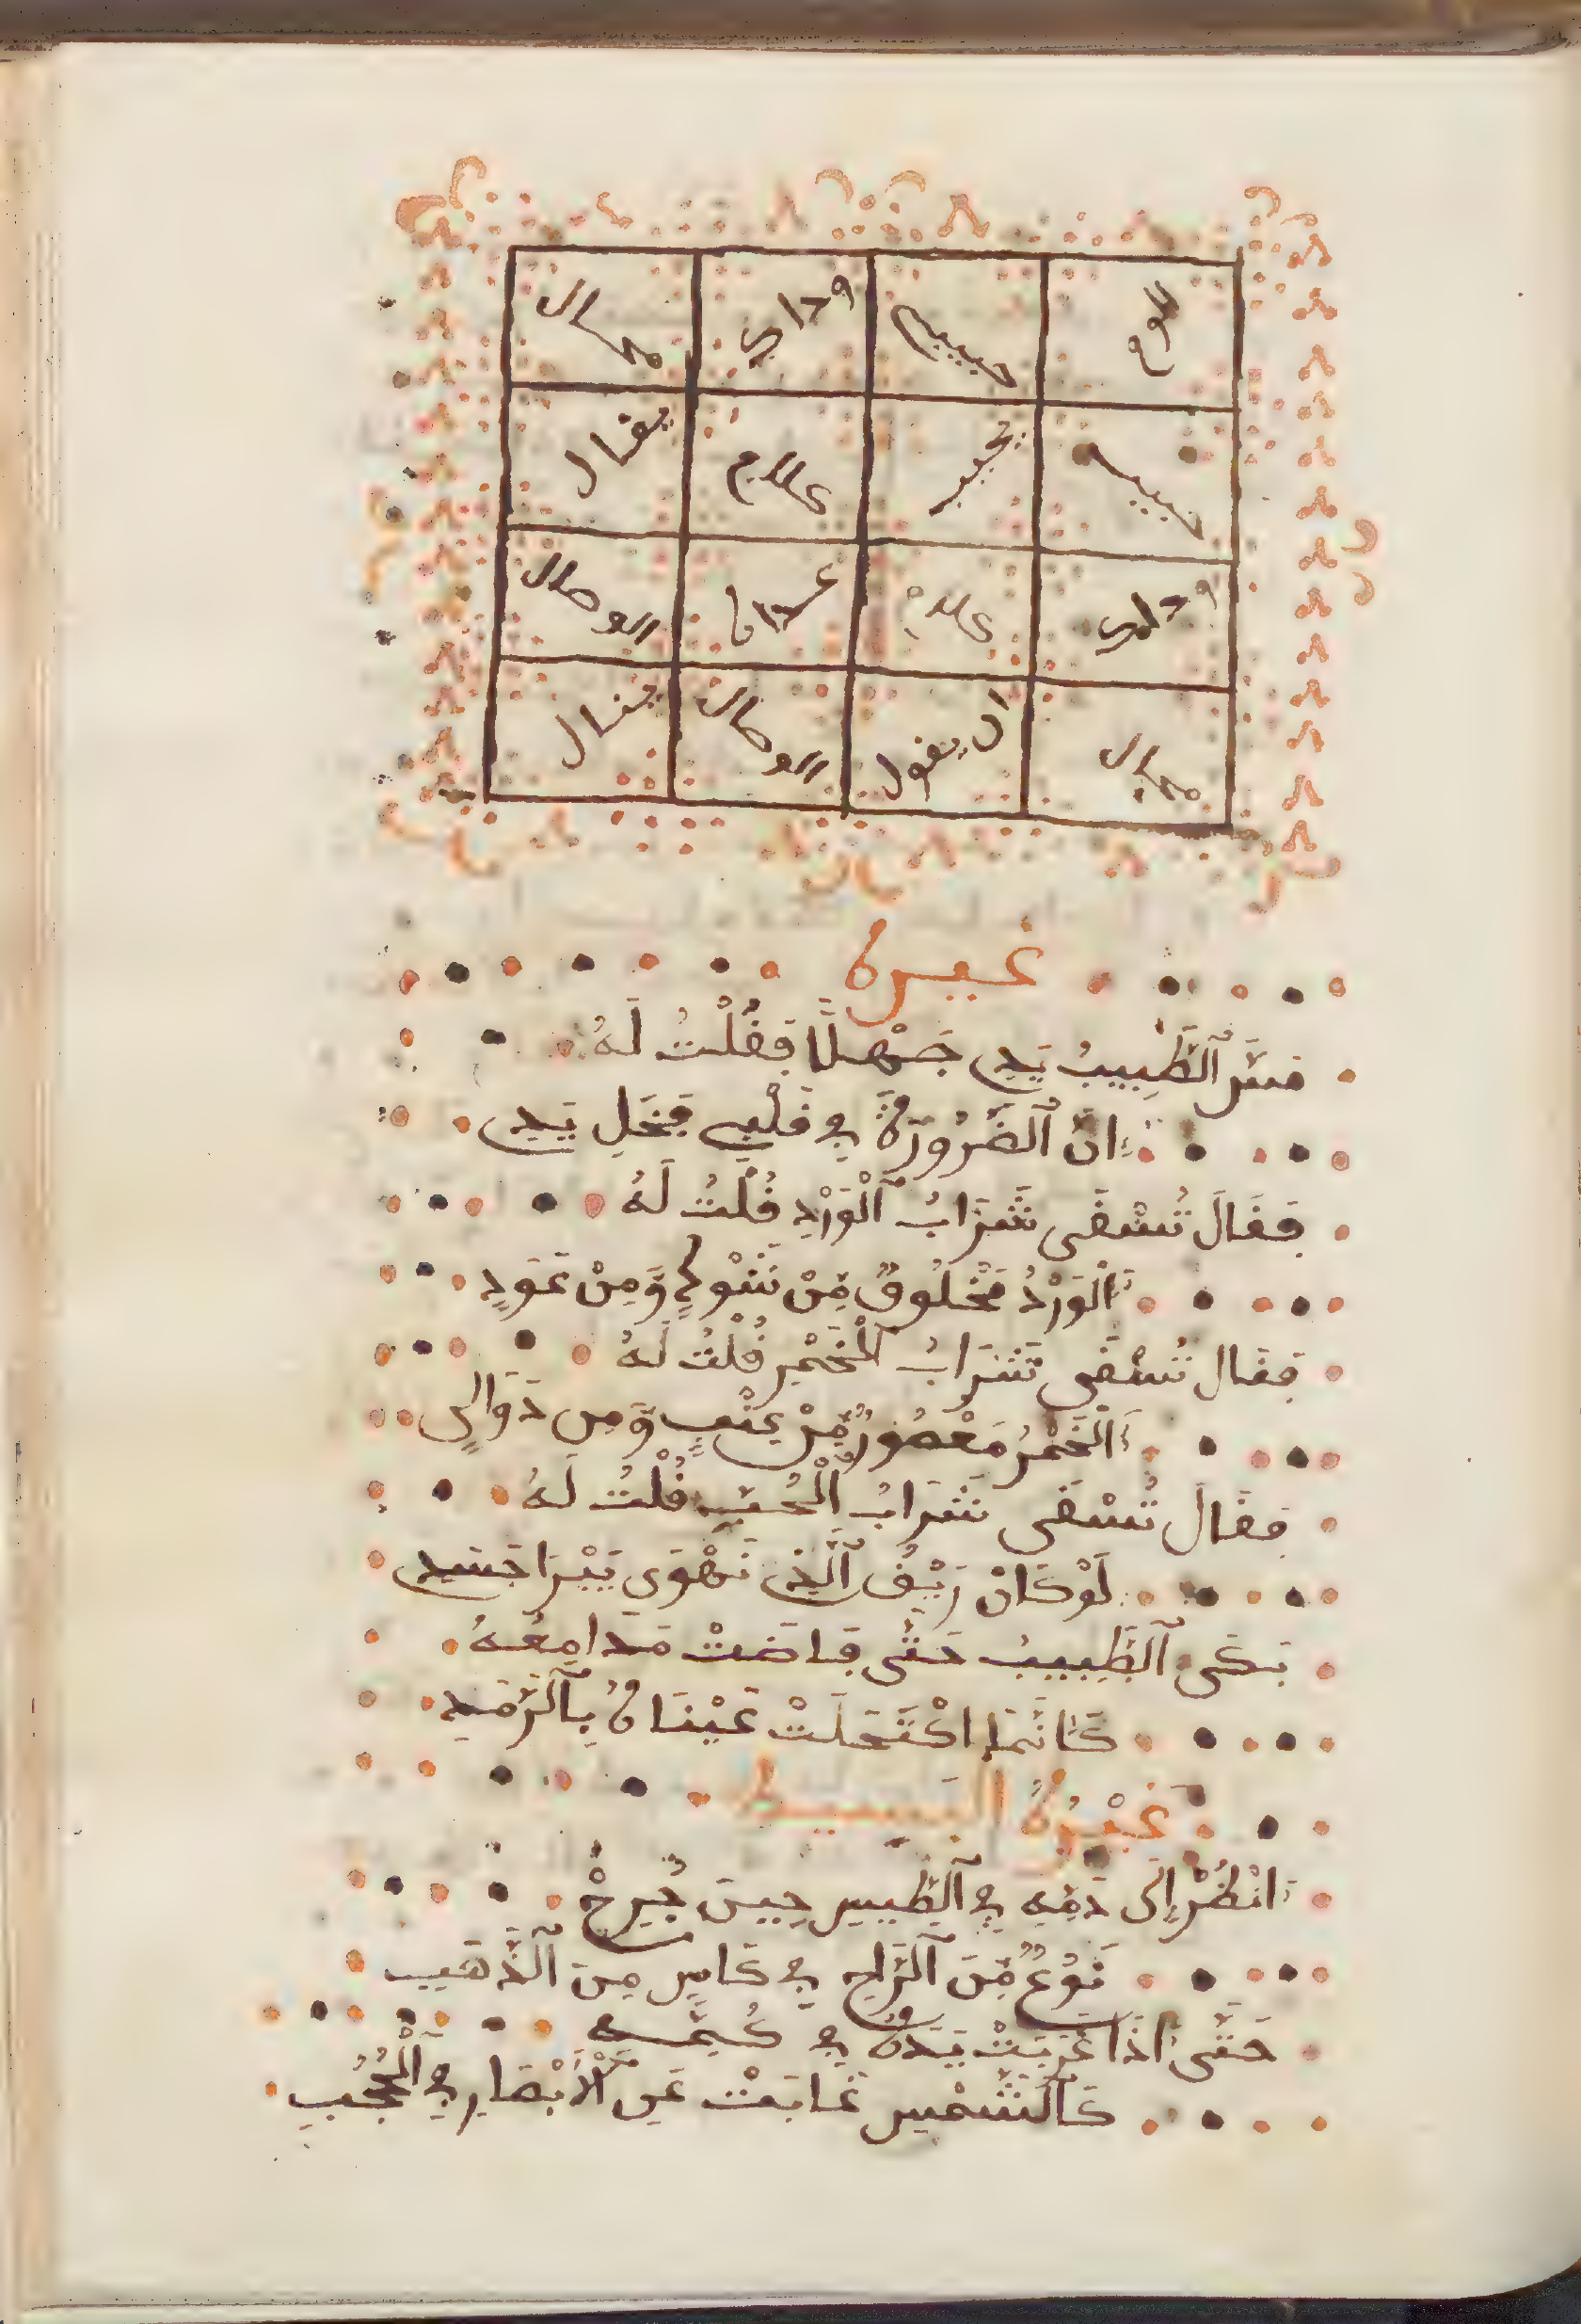 حبيبي
محال
يقال
علاج
الوصال
ينال
الوصال
ان يقول
محال
غيره
مس الطَّبِيبُ يَدِي جَهْلًا فَقُلْتُ لَهُ
اِنَّ الضَّرُورَةَ فِي قَلْبِي فَخَلِّ يَدِي
فَقَالَ تُسْقَى شَرَابُ الْوَرْدِ قُلْتُ لَهُ
اَلْوَرْدُ مَخْلُوقٌ مِّنْ شَوْكٍ وَّمِنْ عَوَدٍ
فَقَال تُسْقَى شَرَابُ الْخَمْرِ قُلْتُ لَهُ
اَلْخَمْرُ مَعْصُورٌ مِّنْ عِنَبٍ وَّمِن دَوَالِي
فَقَالَ تُسْقَى شَرَابُ الْحُبِّ قُلْتُ لَهُ
لَوْ كَانْ رَيْقُ الَّذِي نَهْوَى يَبْرَا جَسَدِي
بَكَى الطَّبِيبُ حَتَّى فَاضَتْ مَدَامِعُهُ
كَانَّمَا اكْتَحَلَتْ عَيْنَاهُ بِالرَّمَدِ
غَيْرُهُ البسيط
اَنْظُرْ إِلَى دَمِهِ فِي الطَّسِ حِينَ جُرِحْ
نَوْعٌ مِّنَ الرَّاحِ فِي كَاسٍ مِنَ الذَّهَبِ
حَتَّى اذَا غَرَبَتْ يَدُهُ فِي كُمِّهِ
كَالشَّمْسِ غَابَتْ عَنِ الْأَبْصَارِ فِي الْحُجُبِ